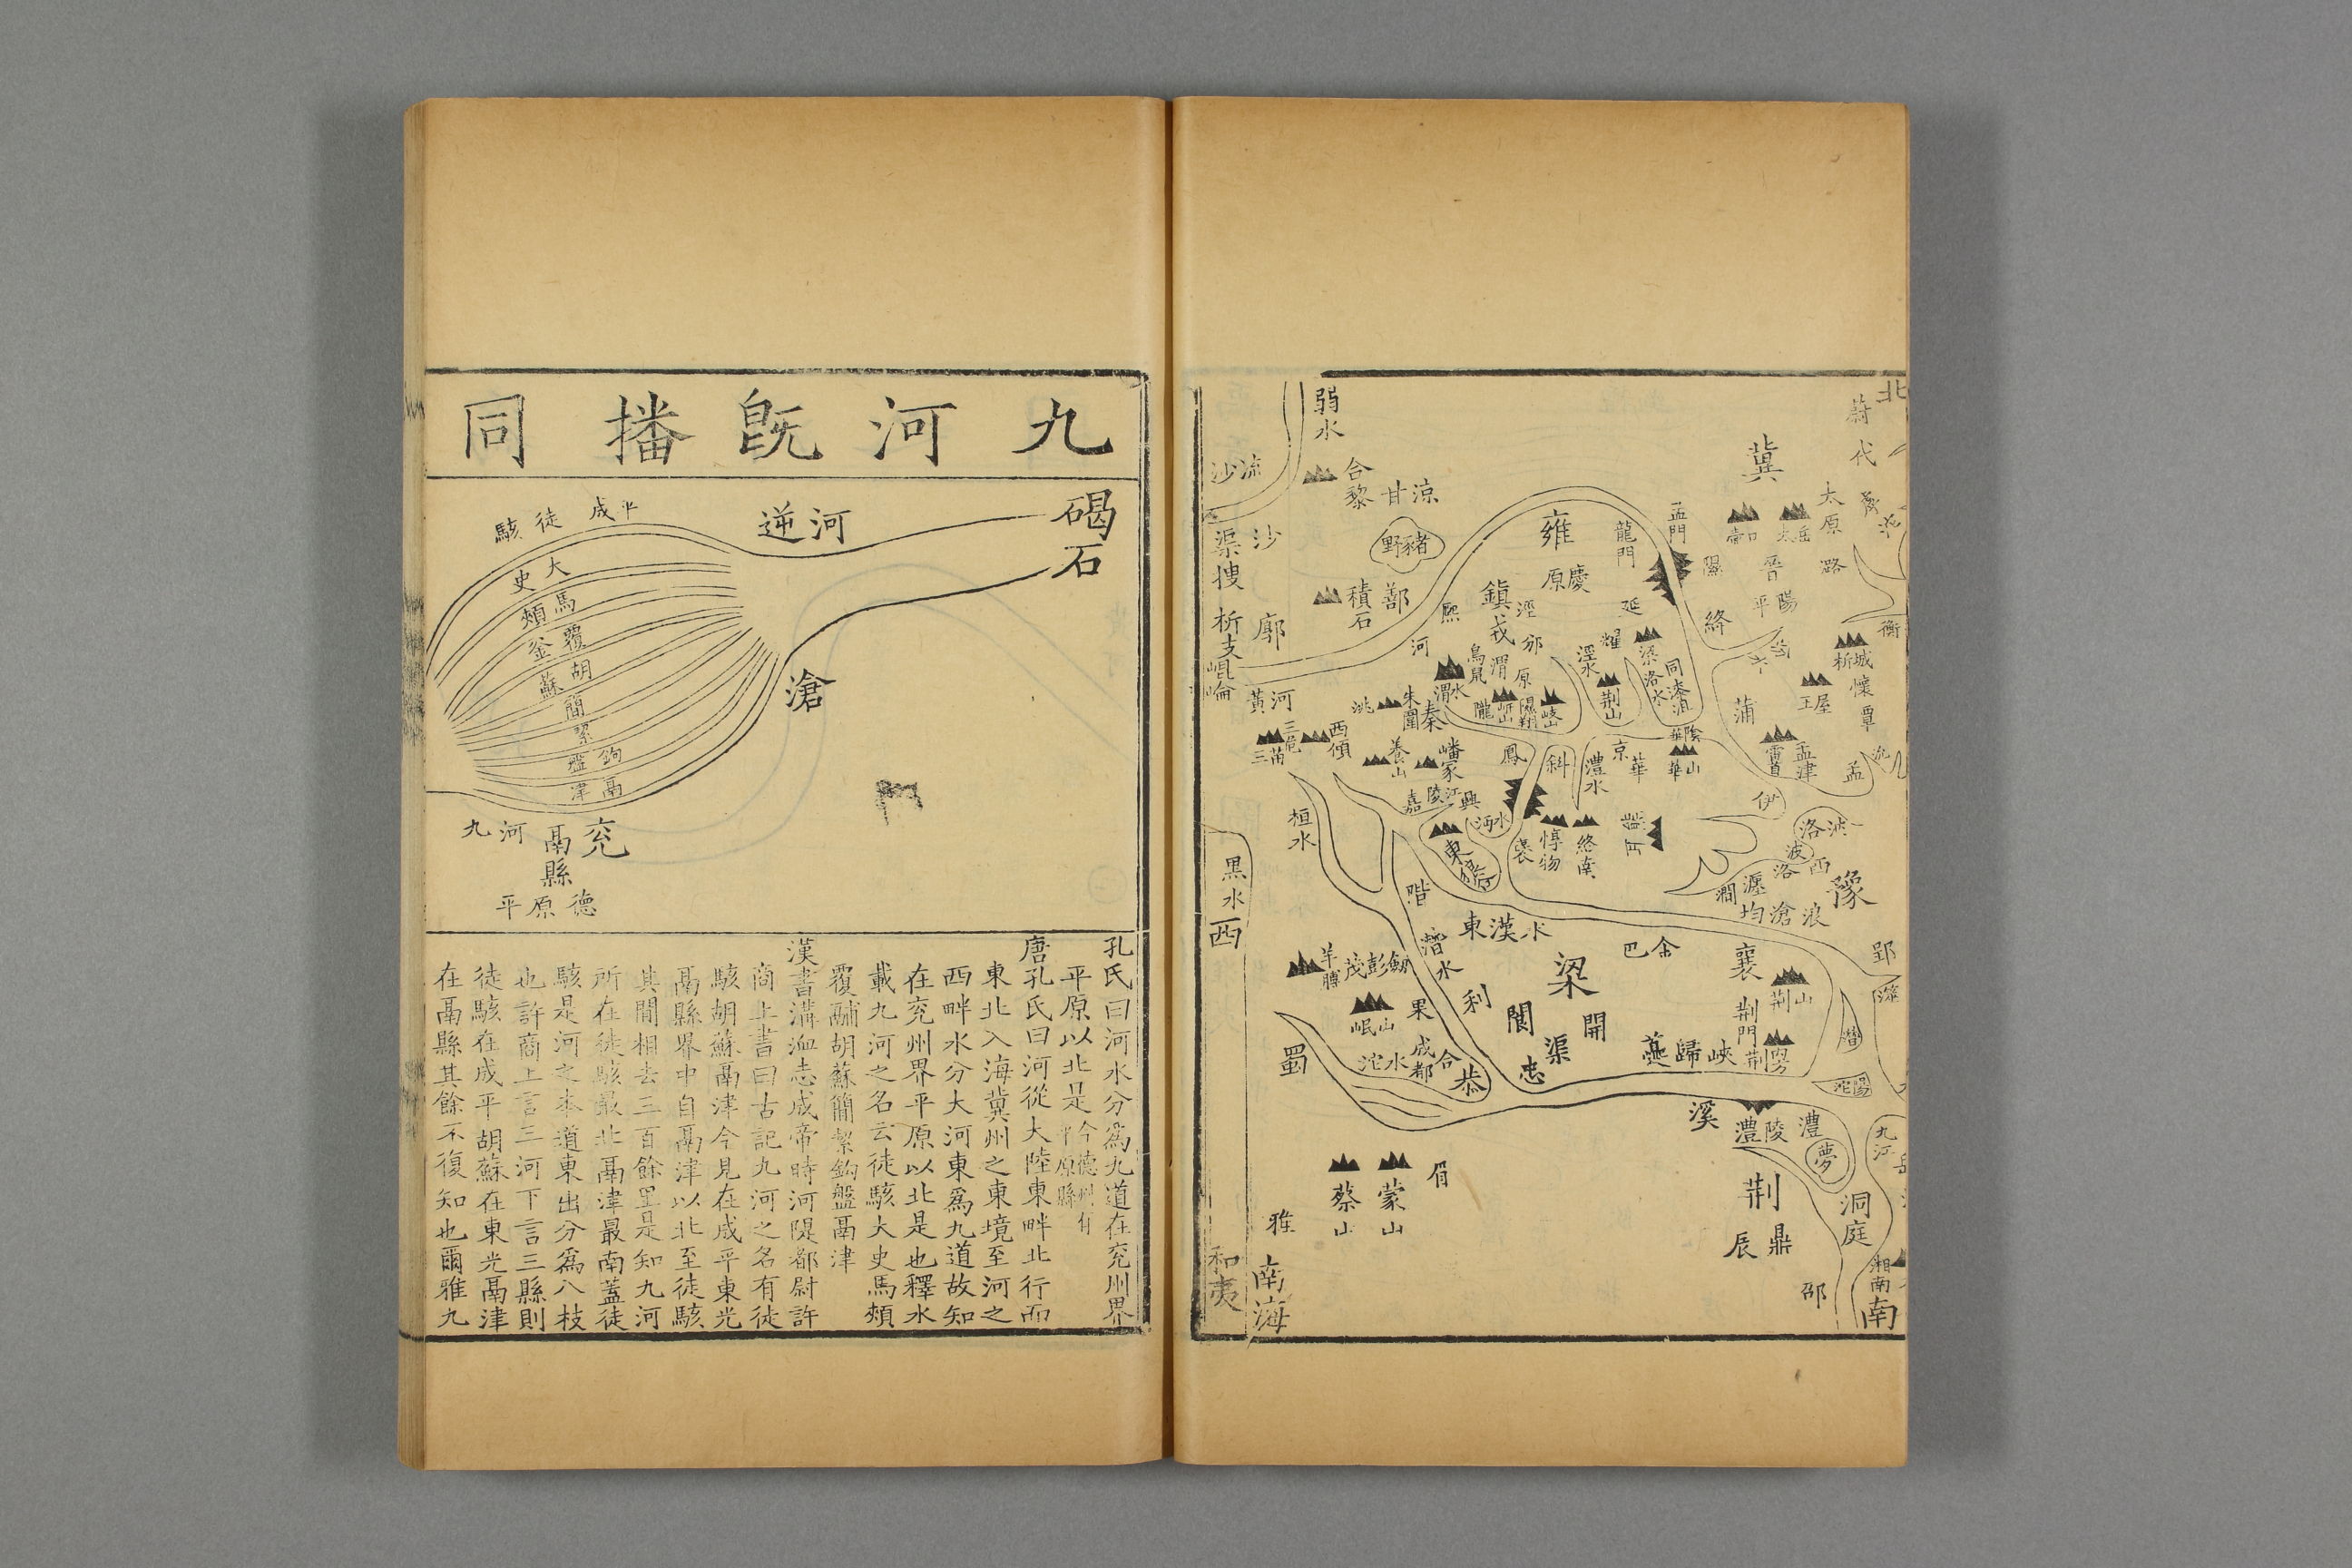 北
蔚
代
冀
太原
潞
壺口
太岳
孟門
隰
晉
平陽
絳
龍門
雍
慶
原
延
鎮戎
涇
邠
耀
熙
河
鄯
積石
涼
甘
豬野
合黎
弱水
流沙
沙
渠搜
廓
析支
崐崘
河黃
衡
析城
王屋
懷
覃
蒲
雷首
孟津
孟
梁
同
漆沮
洛水
荆山
涇水
鳥鼠
渭
原
渭水
隴
朱圉
秦
洮
西傾
三危
三苗
華陰
華山
京
華
灃水
斜
鳳
嶓冢
嘉陵江
興
沔水
褒
惇物
終南
熊耳
伊
洛
波
西
洛
瀍
澗
豫
浪
滄
均
桓水
黑水
西
階
潛水
東漢水
金
巴
襄
荆山
郢
梁
利
閬
渠
開
忠
恭
合
成都
果
劒
彭
茂
羊膊
岷山
沱水
蜀
夔歸峽
荆門
潛
溪
澧
陵
澧
夢
九江
荆
洞庭
鼎
辰
邵
湘南
南
眉
蒙山
蔡山
雅
南海
和夷
九河既播同
碣石
河逆
平成
徒駭
大史
馬頰
覆釜
胡蘇
簡
絜
鉤盤
鬲津
滄
兖
鬲縣
河九
德
原平
孔氏曰河水分爲九道在兖州界
平原以北是今德州有平原縣
唐孔氏曰河從大陸東畔北行而
東北入海冀州之東境至河之
西畔水分大河東爲九道故知
在兖州界平原以北是也釋水
載九河之名云徒駭大史馬頰
覆鬴胡蘇簡絜鉤盤鬲津
漢書溝洫志成帝時河隄都尉許
商上書曰古記九河之名有徒
駭胡蘇鬲津今見在成平東光
鬲縣界中自鬲津以北至徒駭
其間相去三百餘里是知九河
所在徒駭最北鬲津最南蓋徒
駭是河之本道東出分爲八枝
也許商上言三河下言三縣則
徒駭在成平胡蘇在東光鬲津
在鬲縣其餘不復知也爾雅九